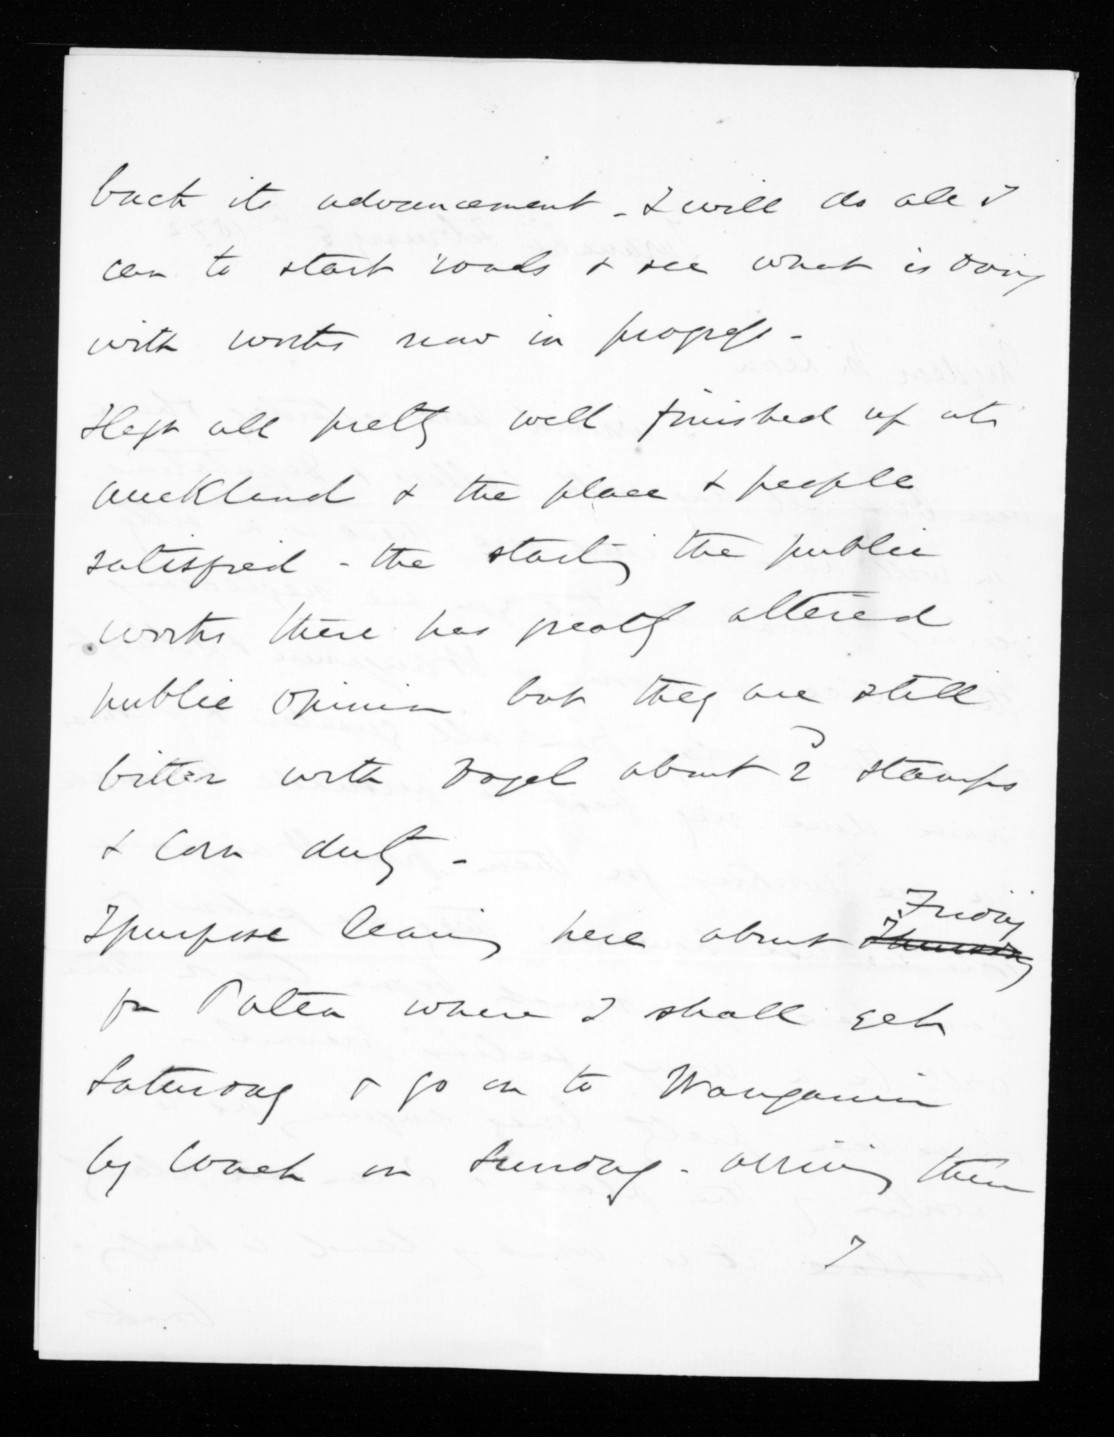 back its advancement - I will do all I
can to start roads & see what is doing
with works now in progress -
I left all pretty well finished up at
Auckland & the place & people
satisfied - the starting the public
works there has greatly altered
public opinion but they are still
bitter with Vogel about 2d stamps
& Corn duty -
I purpose leaving here about Friday
Thursday
for Patea where I shall get
Saturday & go on to Wanganui
by Coach on Sunday - arriving there